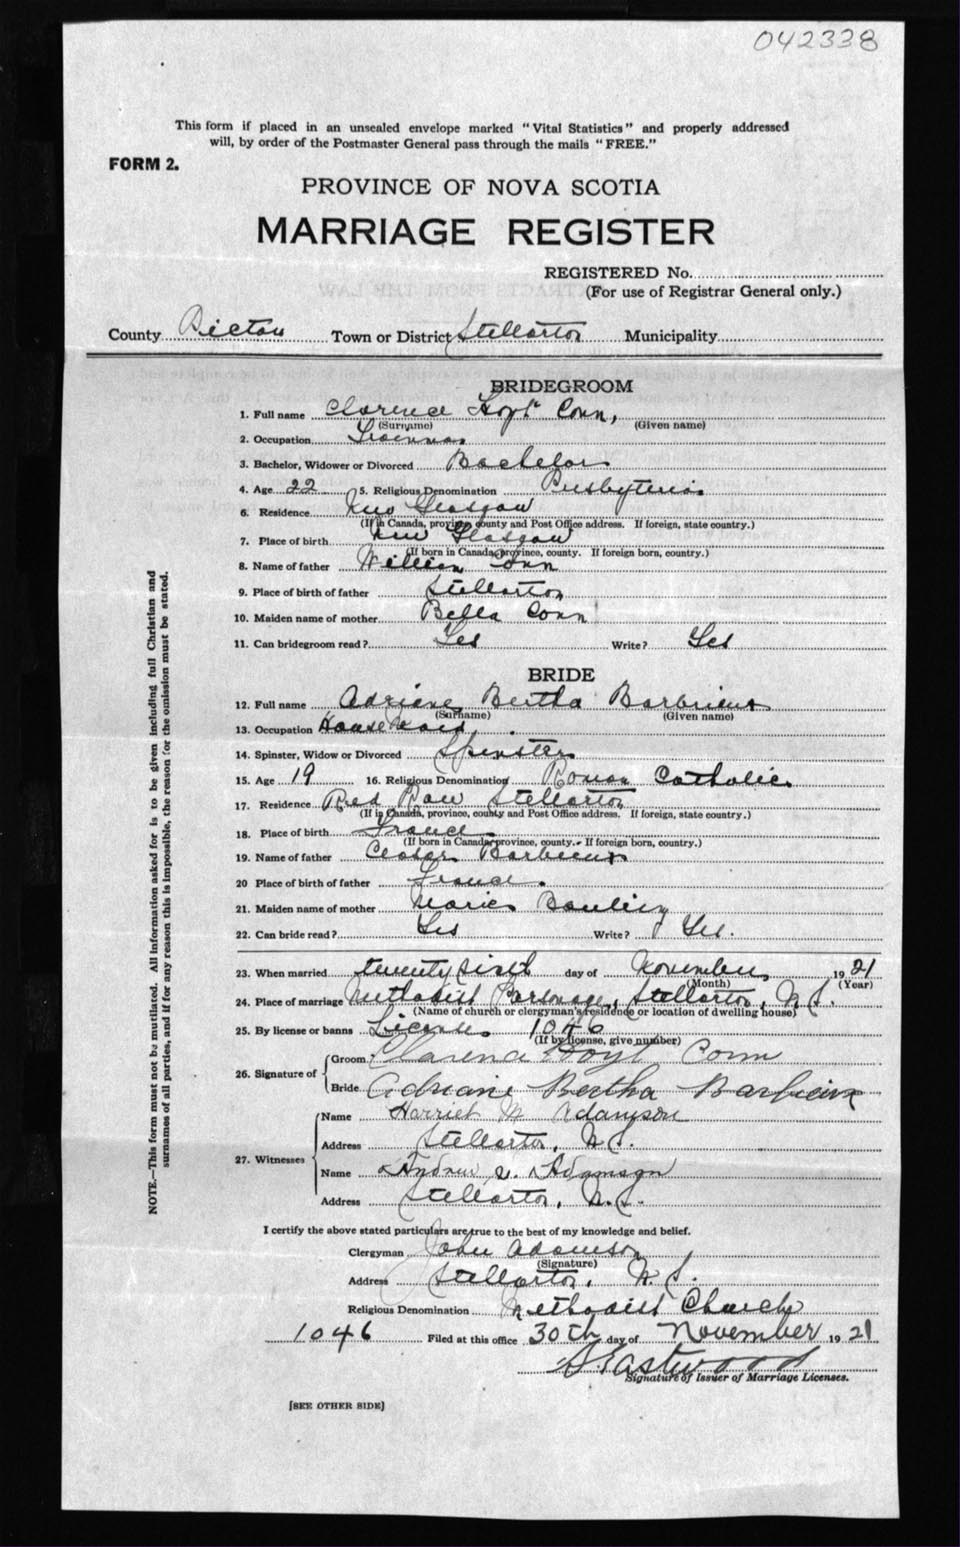 042338
This form if placed in an unsealed envelope marked "Vital Statistics" and properly addressed
will, by order of the Postmaster General pass through the mails "FREE."
FORM 2.
PROVINCE OF NOVA SCOTIA
MARRIAGE REGISTER
REGISTERED No.
(For use of Registrar General only.)
County Pictou Town or District Stellarton Municipality
BRIDEGROOM
1. Full name Clarence Hoyt Conn,
(Surname) (Given name)
2. Occupation
3. Bachelor, Widower or Divorced Bachelor
4. Age 22 5. Religious Denomination Presbyterian
6. Residence New Glasgow
(If in Canada, province county and Post Office address. If foreign, state country.)
7. Place of birth New Glasgow
(If born in Canada, province, county. If foreign born, country.)
8. Name of father William Conn
9. Place of birth of father Stellarton
10. Maiden name of mother Bella Conn
11. Can bridegroom read? Yes Write? Yes
BRIDE
12. Full name Adriane Bertha Barbieux
(Surname) (Given name)
13. Occupation House Maid
14. Spinster, Widow or Divorced Spinster
15. Age 19 16. Religious Denomination Roman Catholic
17. Residence Red Row Stellarton
(If in Canada, province, county and Post Office address. If foreign, state country.)
18. Place of birth France
(If born in Canada, province, county. If foreign born, country.)
19. Name of father Barbieux
20 Place of birth of father France.
21. Maiden name of mother Marie
22. Can bride read? Yes Write? Yes.
23. When married twenty sixth day of November 1921
(Month) (Year)
24. Place of marriage Methodist Parsonage, Stellarton, N.S.
(Name of church or clergyman's residence or location of dwelling house)
25. By license or banns License 1046
(If by license, give number)
26. Signature of Groom Clarence Hoyt Conn
Bride Adriane Bertha Barbieux
27. Witnesses Name Harriet M Adamson
Address Stellarton, N.S.
Name Andrew Adamson
Address Stellarton, N.S.
I certify the above stated particulars are true to the best of my knowledge and belief.
Clergyman John Adamson
(Signature)
Address Stellarton, N.S.
Religious Denomination Methodist Church
1046 Filed at this office 30th day of November 1921
Eastwood
Signature of Issuer of Marriage Licenses.
[SEE OTHER SIDE]
NOTE.—This form must not be mutilated. All information asked for is to be given including full Christian and
surnames of all parties, and if for any reason this is impossible, the reason for the omission must be stated.